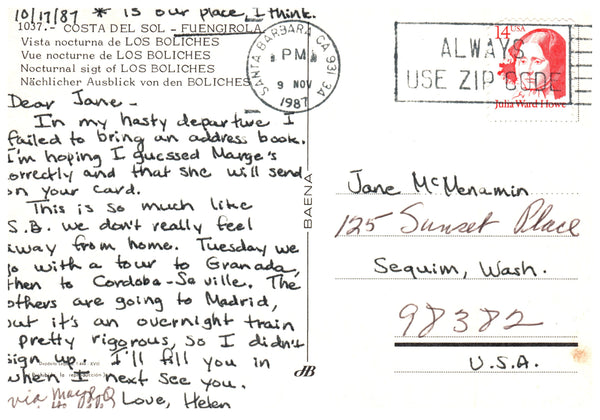 10/17/87 * is our place, I think.
1037.- COSTA DEL SOL - FUENGIROLA
Vista nocturna de LOS BOLICHES
Vue nocturne de LOS BOLICHES
Nocturnal sigt of LOS BOLICHES
Nächlicher Ausblick von den BOLICHES
Dear Jane-
In my hasty departure I
failed to bring an address book.
I'm hoping I guessed Marge's
orrectly and that she will send
on your card.
This is so much like
S.B. we don't really feel
away from home. Tuesday we
go with a tour to Granada,
then to Cordoba-Seville. The
others are going to Madrid,
but it's an overnight train
pretty rigorous, so I didn't
sign up. I'll fill you in
when I next see you.
Love, Helen
via
BAENA
SANTA BARBARA CA 931 34
PM
9 NOV
1987
ALWAYS
USE ZIP CODE
14 USA
Julia Ward Howe
Jane McMenamin
125 Sunset Place
Sequim, Wash.
98382
U.S.A.